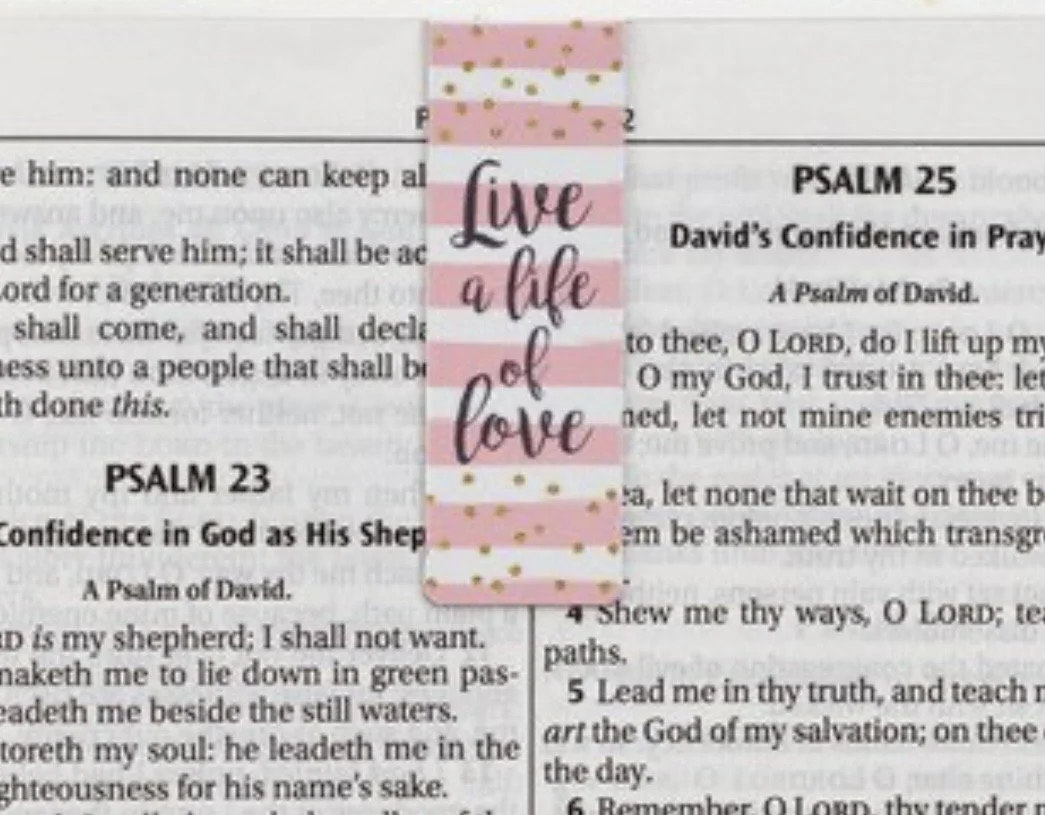 Live
a life
of
love
e him: and none can keep al
d shall serve him; it shall be ac
Lord for a generation.
shall come, and shall decla
ness unto a people that shall be
th done this.
PSALM 23
Confidence in God as His Shep
A Psalm of David.
RD is my shepherd; I shall not want.
maketh me to lie down in green pas-
eadeth me beside the still waters.
toreth my soul: he leadeth me in the
ghteousness for his name's sake.
PSALM 25
David's Confidence in Pray
A Psalm of David.
to thee, O LORD, do I lift up my
O my God, I trust in thee: let
med, let not mine enemies tri
ea, let none that wait on thee b
em be ashamed which transgre
4 Shew me thy ways, O LORD; tea
paths.
5 Lead me in thy truth, and teach m
art the God of my salvation; on thee
the day.
6 Remember, O LORD, thy tender m